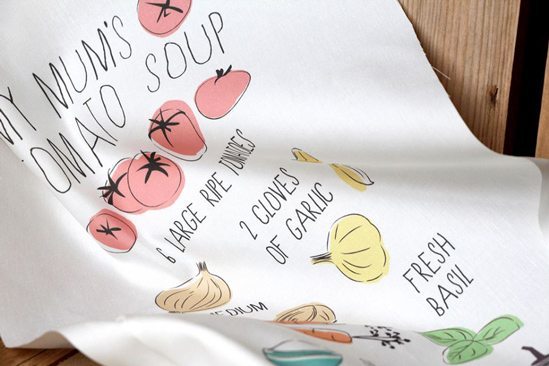 MY MUM'S
TOMATO SOUP
6 LARGE RIPE TOMATOES
2 CLOVES
OF GARLIC
FRESH
BASIL